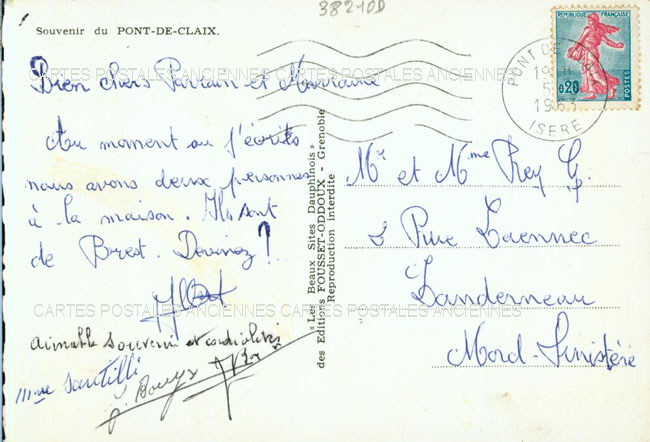 38210D
Souvenir du PONT-DE-CLAIX.
Bien chers Parrain et Marraine
Au moment ou j'écrits
nous avons deux personnes
à la maison. Ils sont
de Brest. Devinez?
Aimable souvenir et
Mme Santilli
"Les Beaux Sites Dauphinois"
des Editions FOUSSET-ODDOUX - Grenoble
Reproduction Interdite
REPUBLIQUE FRANÇAISE
0,20
POSTES
PONT DE
1963
ISERE
Mr et Mme Rey G.
3 Rue Laennec
Landerneau
Nord-Finistère
CARTES POSTALES ANCIENNES CARTES POSTALES ANCIENNES
CARTES POSTALES ANCIENNES CARTES POSTALES ANCIENNES